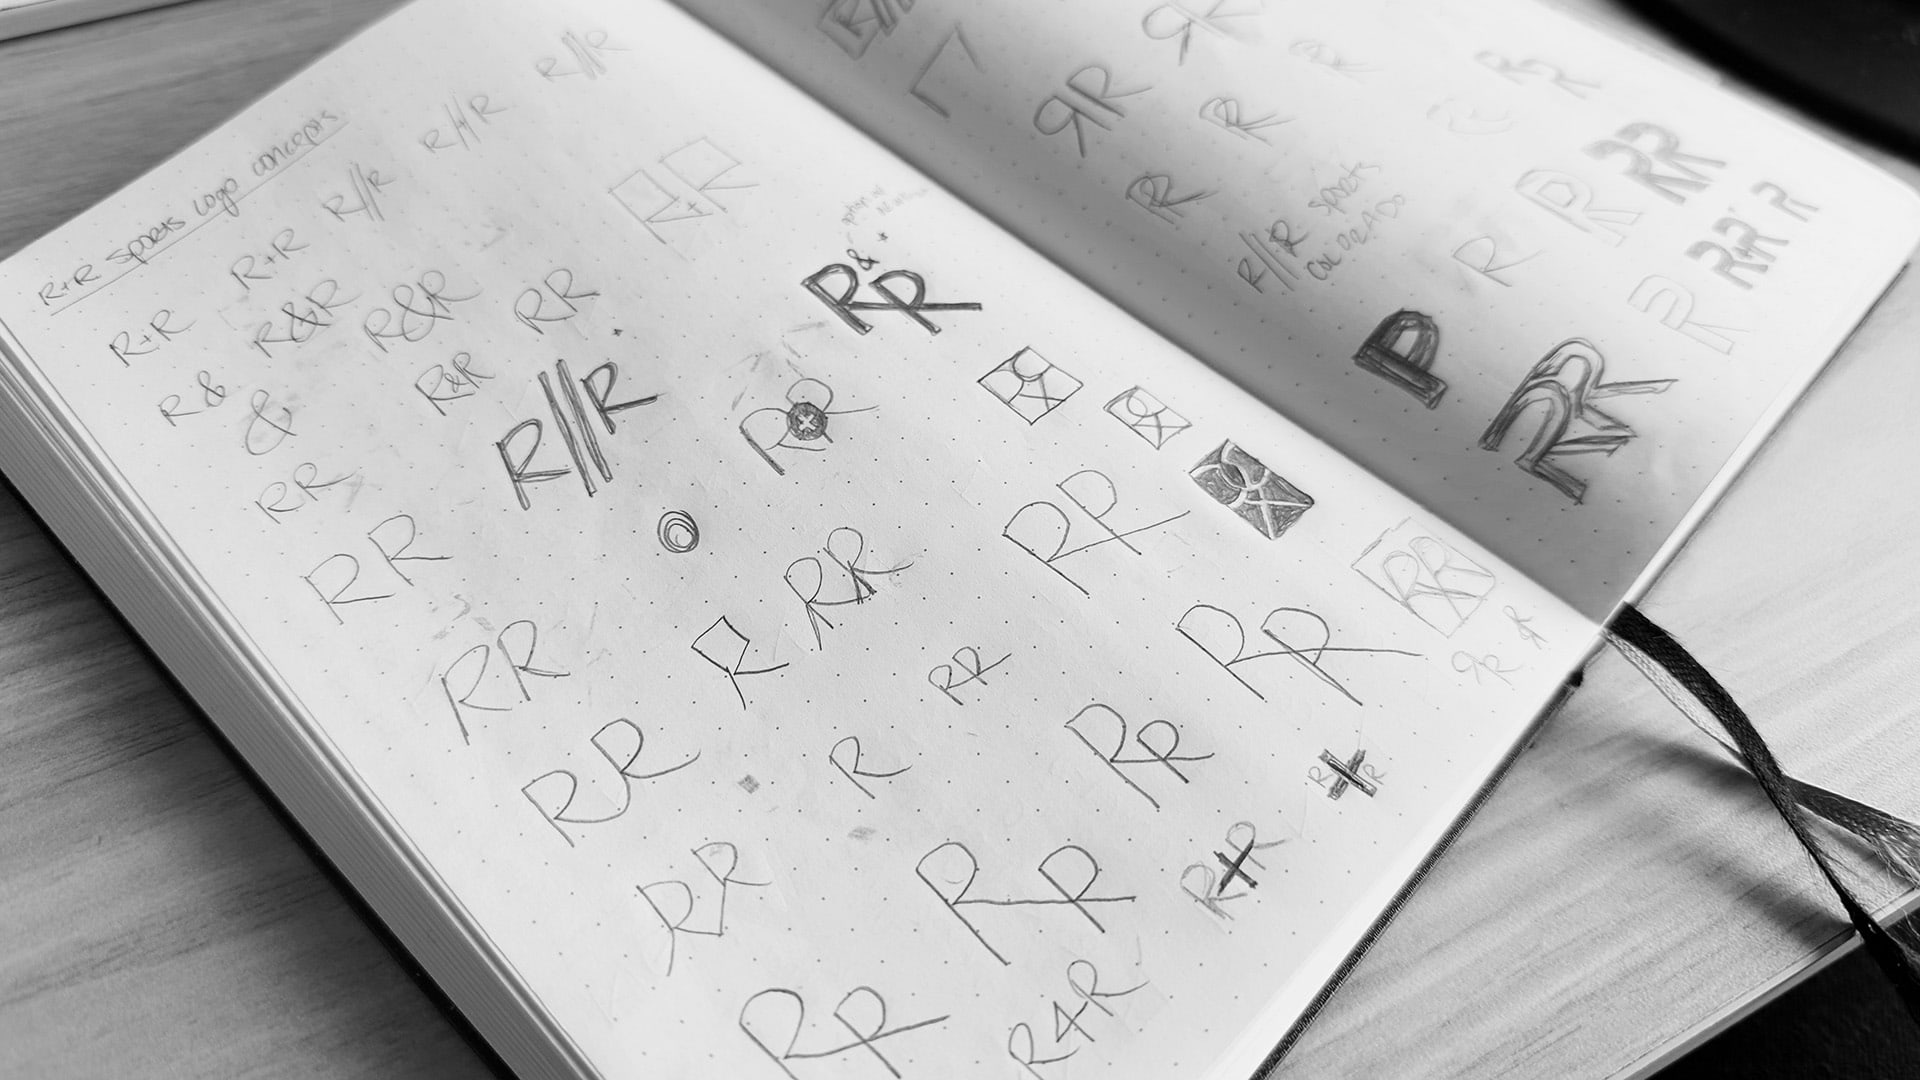 R+R SPORTS LOGO CONCEPTS
R+R
R+R
R//R
R//R
R//R
R&
R&R
R&R
RR
R+R
&
R&R
R//R
RR
R&R
RR
RR
RR
RR
R
RR
RR
RR
RR
R
RR
RR
RR
RR
RR
R+R
R+R
RR
R+R
RR
R//R SPORTS
COLORADO
RR
RR
R
RR
R
RR